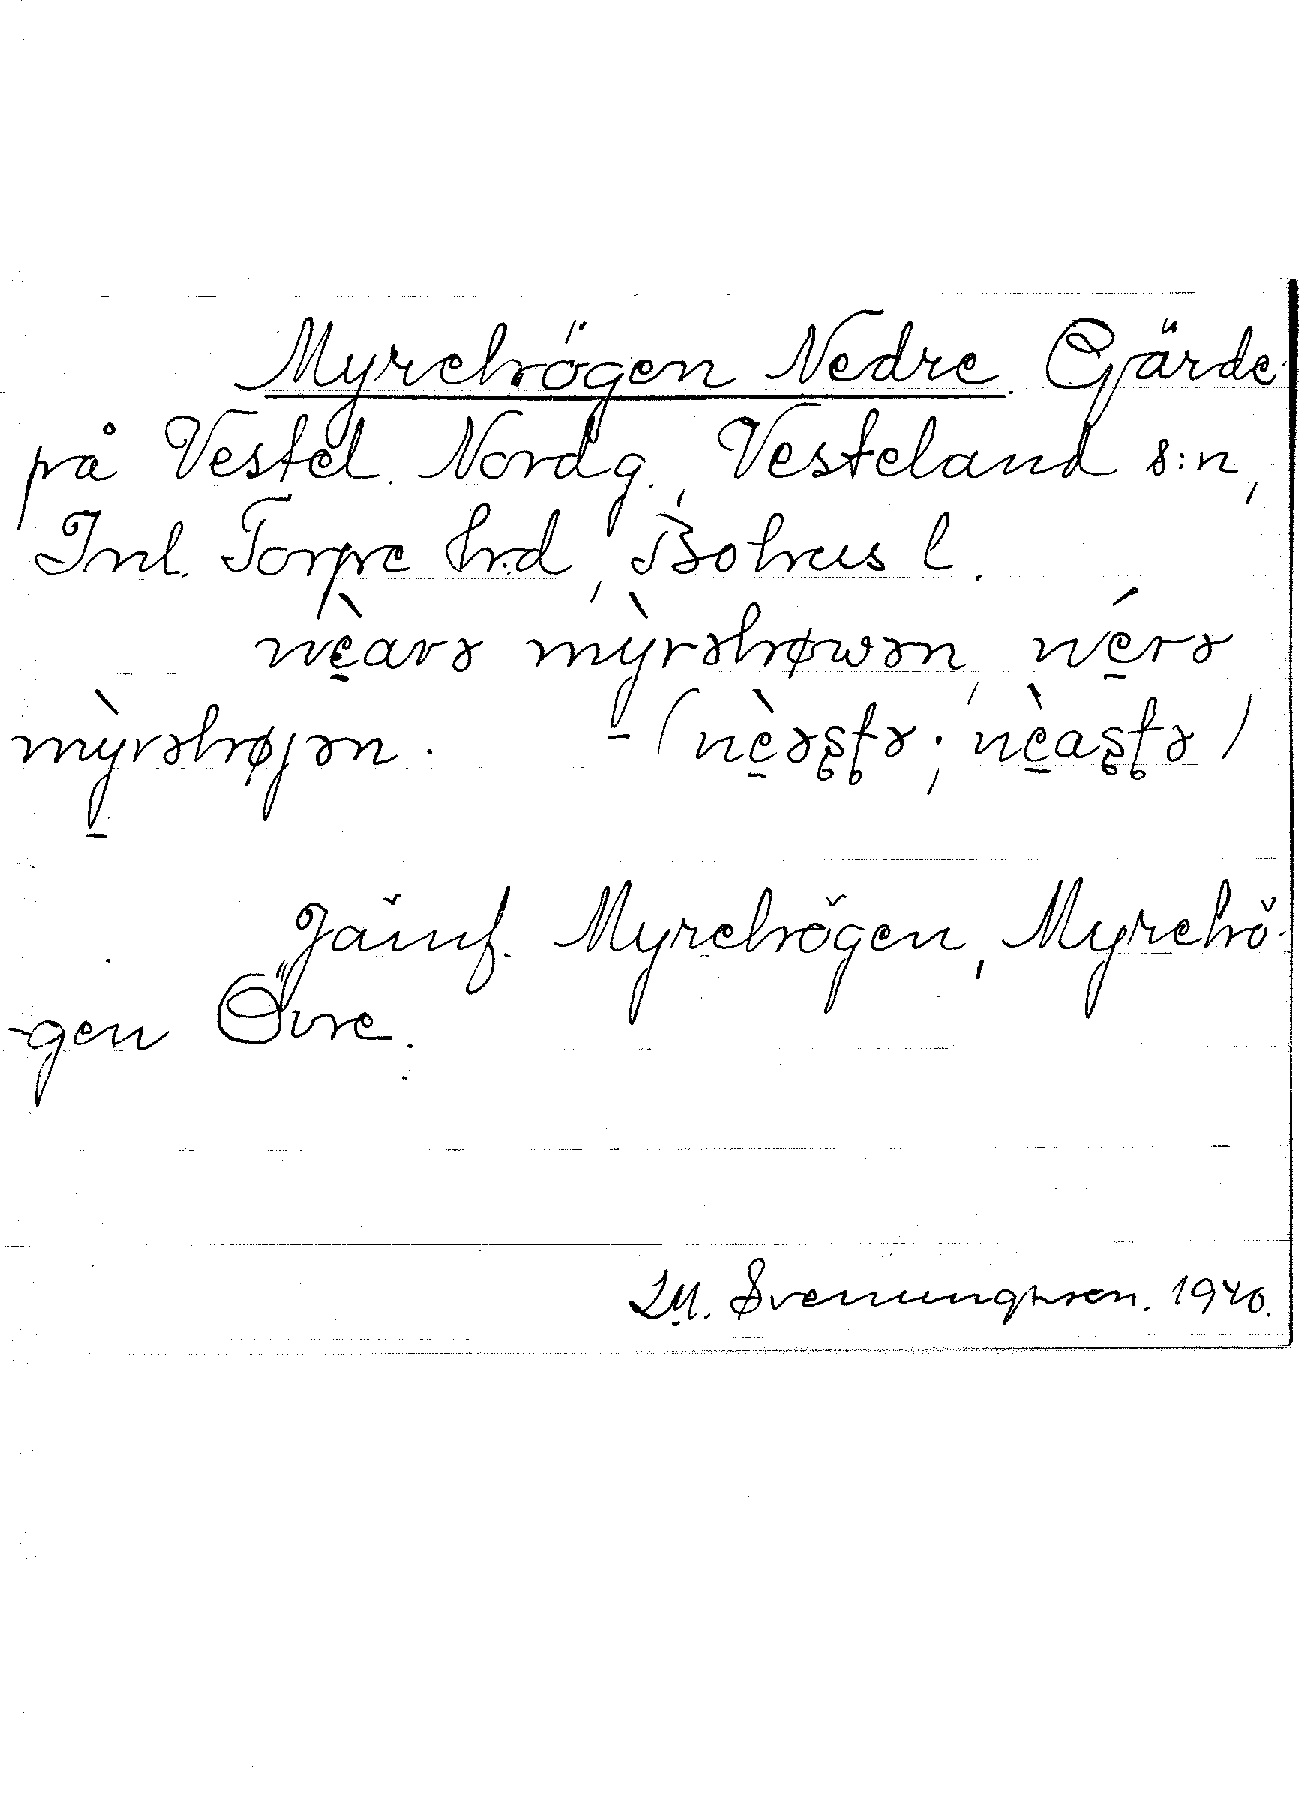 Myrehögen Nedre. Gärde
på Vestel. Nordg., Vesteland s:n,
Inl. Torpe hrd, Bohus l.
nèarə mỳrəhøwən, nérə
mỳrəhøjən. (nèəʂʈə; nèaʂʈə)
Jämf. Myrehögen, Myrehö-
-gen Övre.
L.M. Svenungsson. 1940.